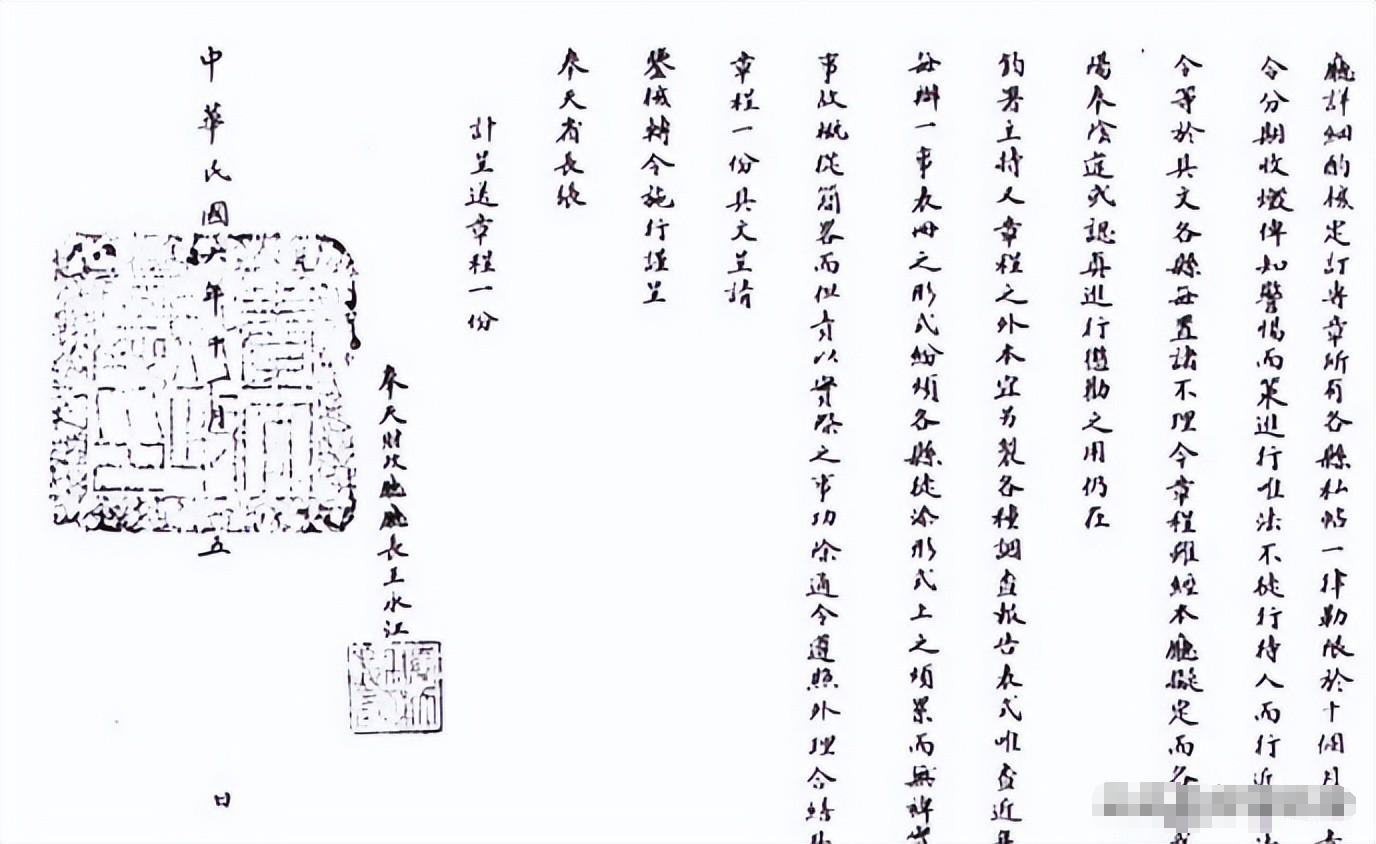 廳詳細酌核定訂專章所有各縣私帖一律勒限於十個月
令分期收燬俾知警惕而策進行唯法不徒行待人而行近
令等於具文各縣每置諸不理今章程雖經本廳擬定而各
陽奉陰違或認真進行獎勸之用仍在
鈞署主持又章程之外本宜另製各種調查報告表式唯查近
每辦一事表冊之形式紛煩各縣徒添形式上之煩累而無裨
事故概從簡略而但責以實際之事功除通令遵照外理合繕
章程一份具文呈請
鑒核轉令施行謹呈
奉天省長張
計呈送章程一份
奉天財政廳廳長王永江
中華民國六年十月五日